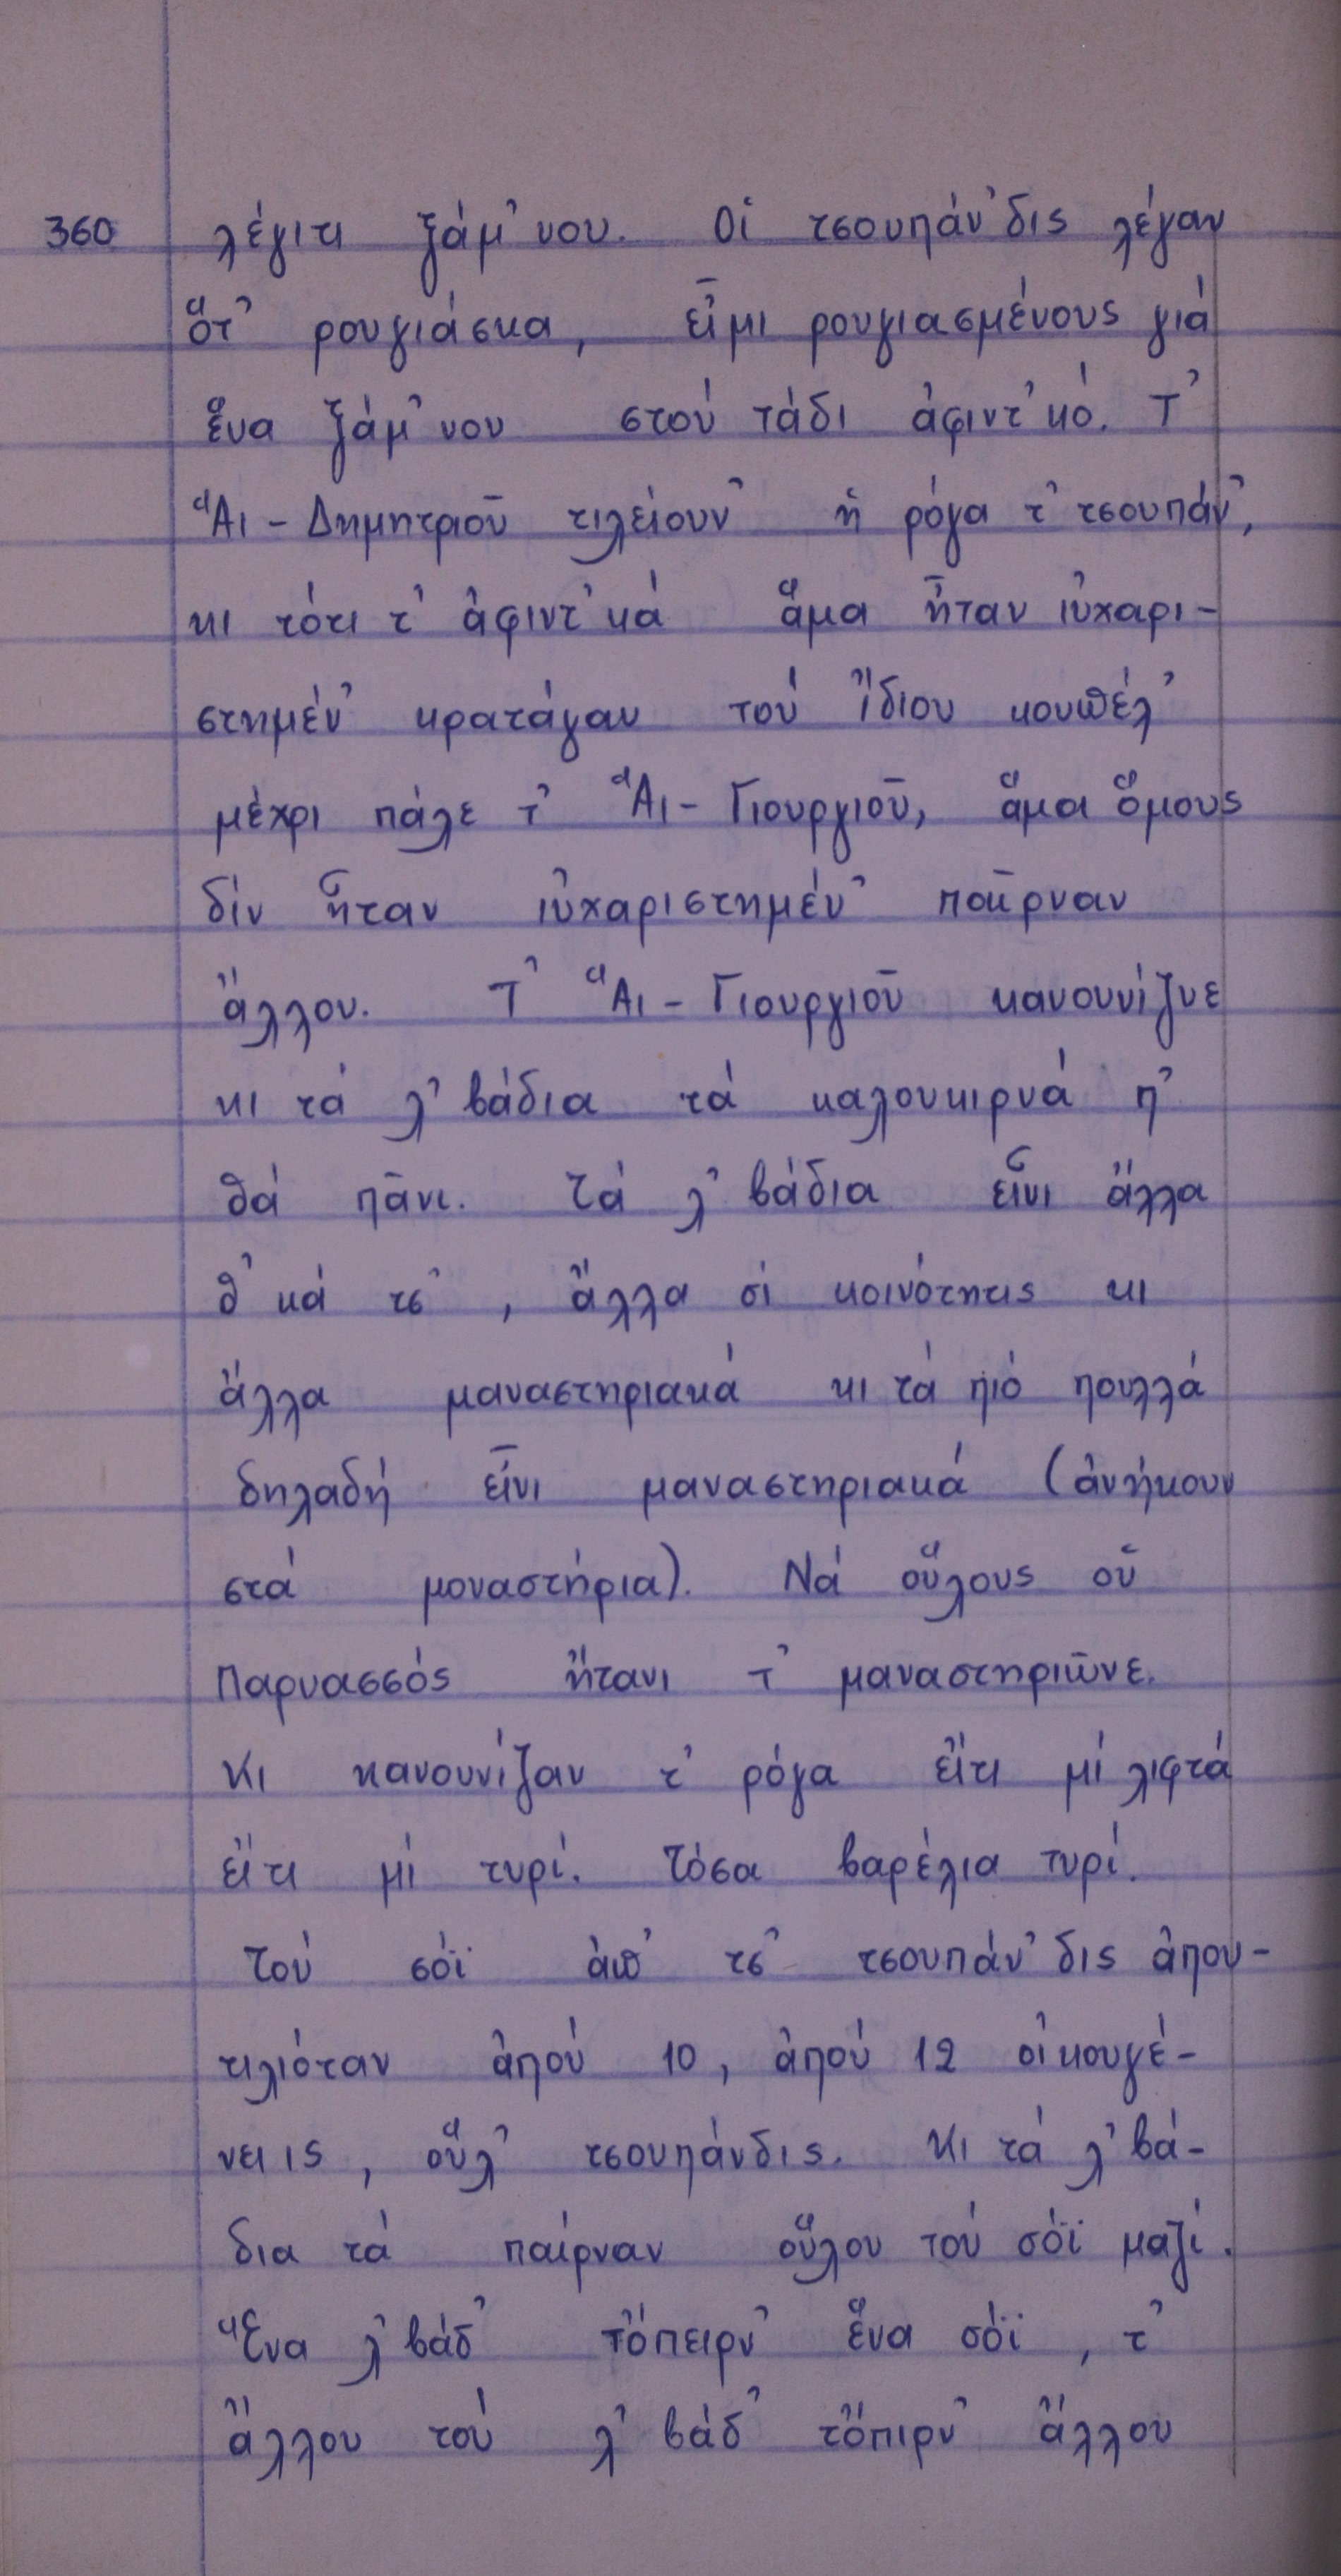 360 λέγιτι ξάμ'νου. Οἱ τσουπάν'δις λέγαν
ὅτ' ρουγιάσκα, εἶμι ρουγιασμένους γιά
ἕνα ξάμ'νου στού τάδι ἀφιντ'κό. Τ'
Ἅι-Δημητριοῦ τιλείουν' ἡ ρόγα τ' τσουπάν',
κι τότι τ' ἀφιντ'κά ἅμα ἦταν ἰυχαρι-
στημέν' κρατάγαν τού ἴδιου κουπέλ'
μέχρι πάλε τ' Ἅι-Γιουργιοῦ, ἅμα ὅμους
δίν ἦταν ἰυχαριστημέν' παῖρναν
ἄλλου. Τ' Ἅι-Γιουργιοῦ κανουνίζνε
κι τά λ'βάδια τά καλουκιρνά π'
θά πᾶνι. Τά λ'βάδια εἶνι ἄλλα
θ'κά τς', ἄλλα σί κοινότητις κι
ἄλλα μαναστηριακά κι τά πιό πουλλά
δηλαδή εἶνι μαναστηριακά (ἀνήκουν
στά μοναστήρια). Νά οὕλους οὑ
Παρνασσός ἤτανι τ' μαναστηριῶνε.
Κι κανουνίζαν τ' ρόγα εἴτι μί λιφτά
εἴτι μί τυρί. Τόσα βαρέλια τυρί.
Τού σόϊ ἀπ' τς' τσουπάν'δις ἀπου-
τιλιόταν ἀπού 10, ἀπού 12 οἰκουγέ-
νειις, οὕλ' τσουπάνδις. Κι τά λ'βά-
δια τά παίρναν οὕλου τού σόϊ μαζί.
Ἕνα λ'βάδ' τὄπειρν' ἕνα σόϊ, τ'
ἄλλου τού λ'βάδ' τὄπιρν' ἄλλου